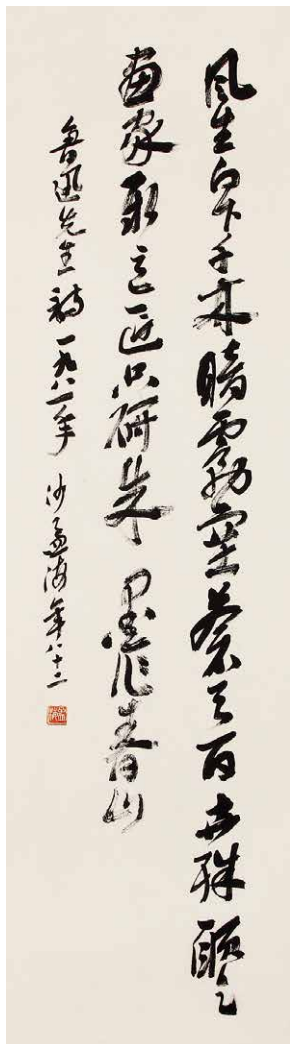 風生白下千林暗霧塞蒼天百卉殫願乞
畫家新意匠只研朱墨作春山
魯迅先生詩一九八一年 沙孟海年八十二